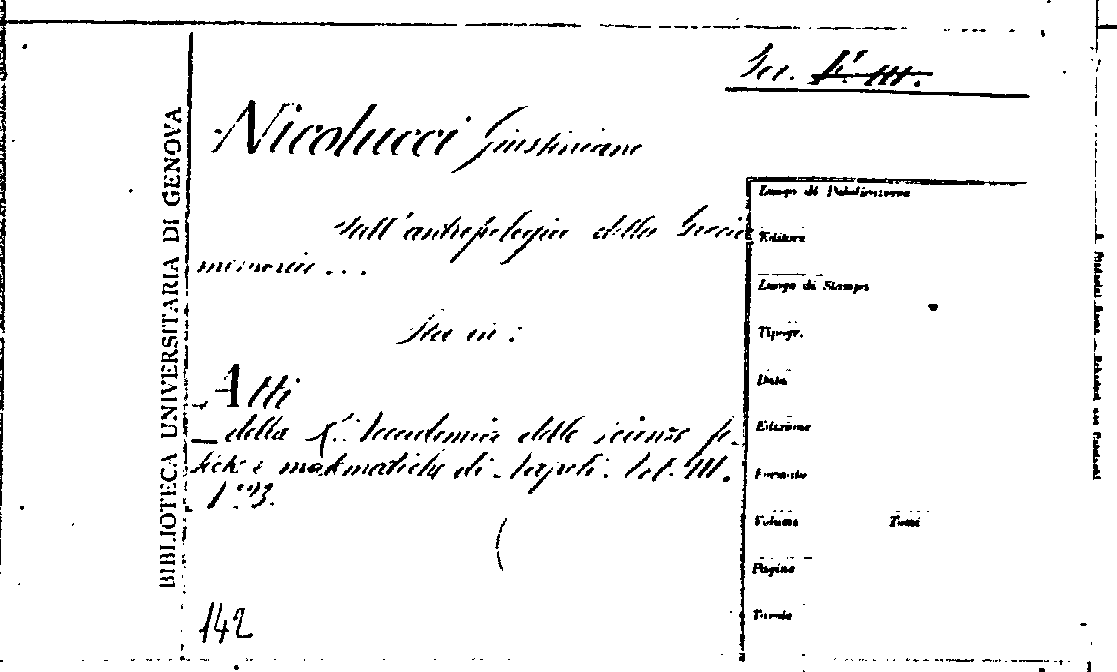 Ser. F. III.
Nicolucci Giustiniano
Sull'antropologia della Grecia
memoria...
Sta in:
Atti
della R. Accademia delle scienze fi-
siche e matematiche di Napoli. Vol. III.
142
BIBLIOTECA UNIVERSITARIA DI GENOVA
Luogo di Pubblicazione
Editore
Luogo di Stampa
Tipogr.
Data
Edizione
Formato
Volume Tomi
Pagine
Tavole